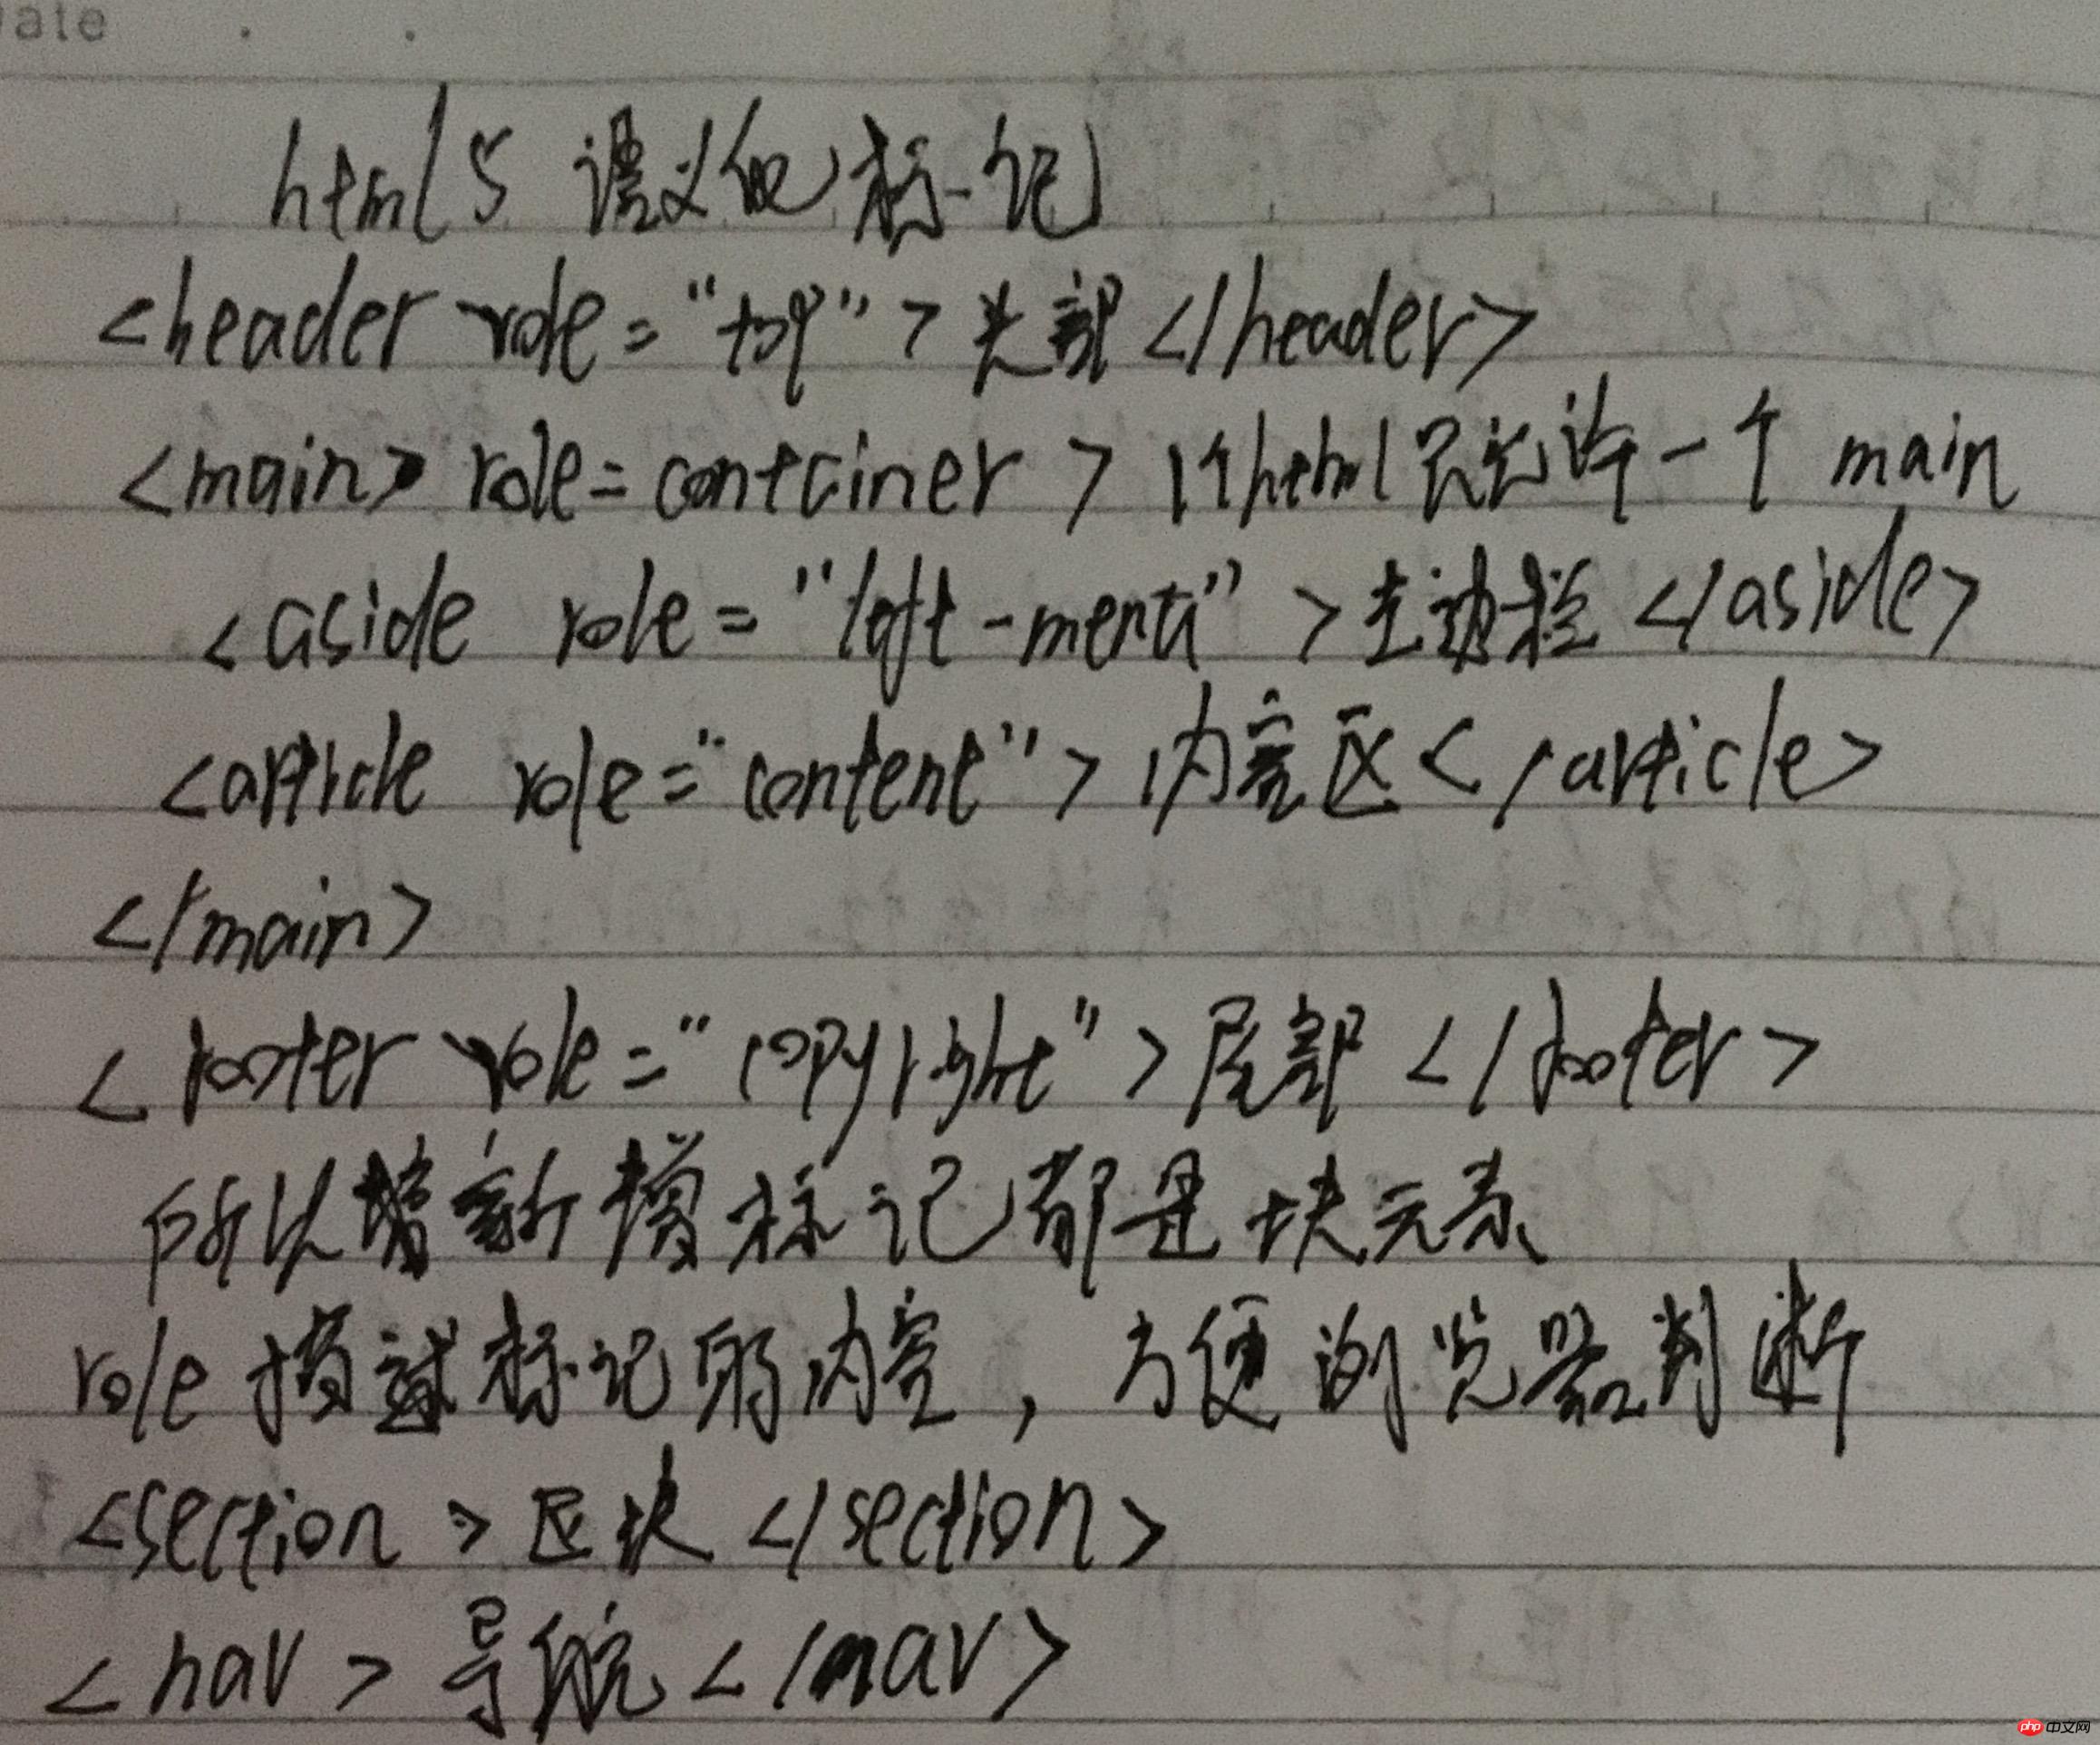 ate
html5 语义化标记
<header role="top">头部</header>
<main> role=container > 1个html只允许一个 main
<aside role="left-menu">左边栏</aside>
<article role="content">内容区</article>
</main>
<footer role="copyright">尾部</footer>
所以增新增标记都是块元素
role 描述标记的内容，方便浏览器判断
<section>区块</section>
<nav>导航</nav>
php 中文网